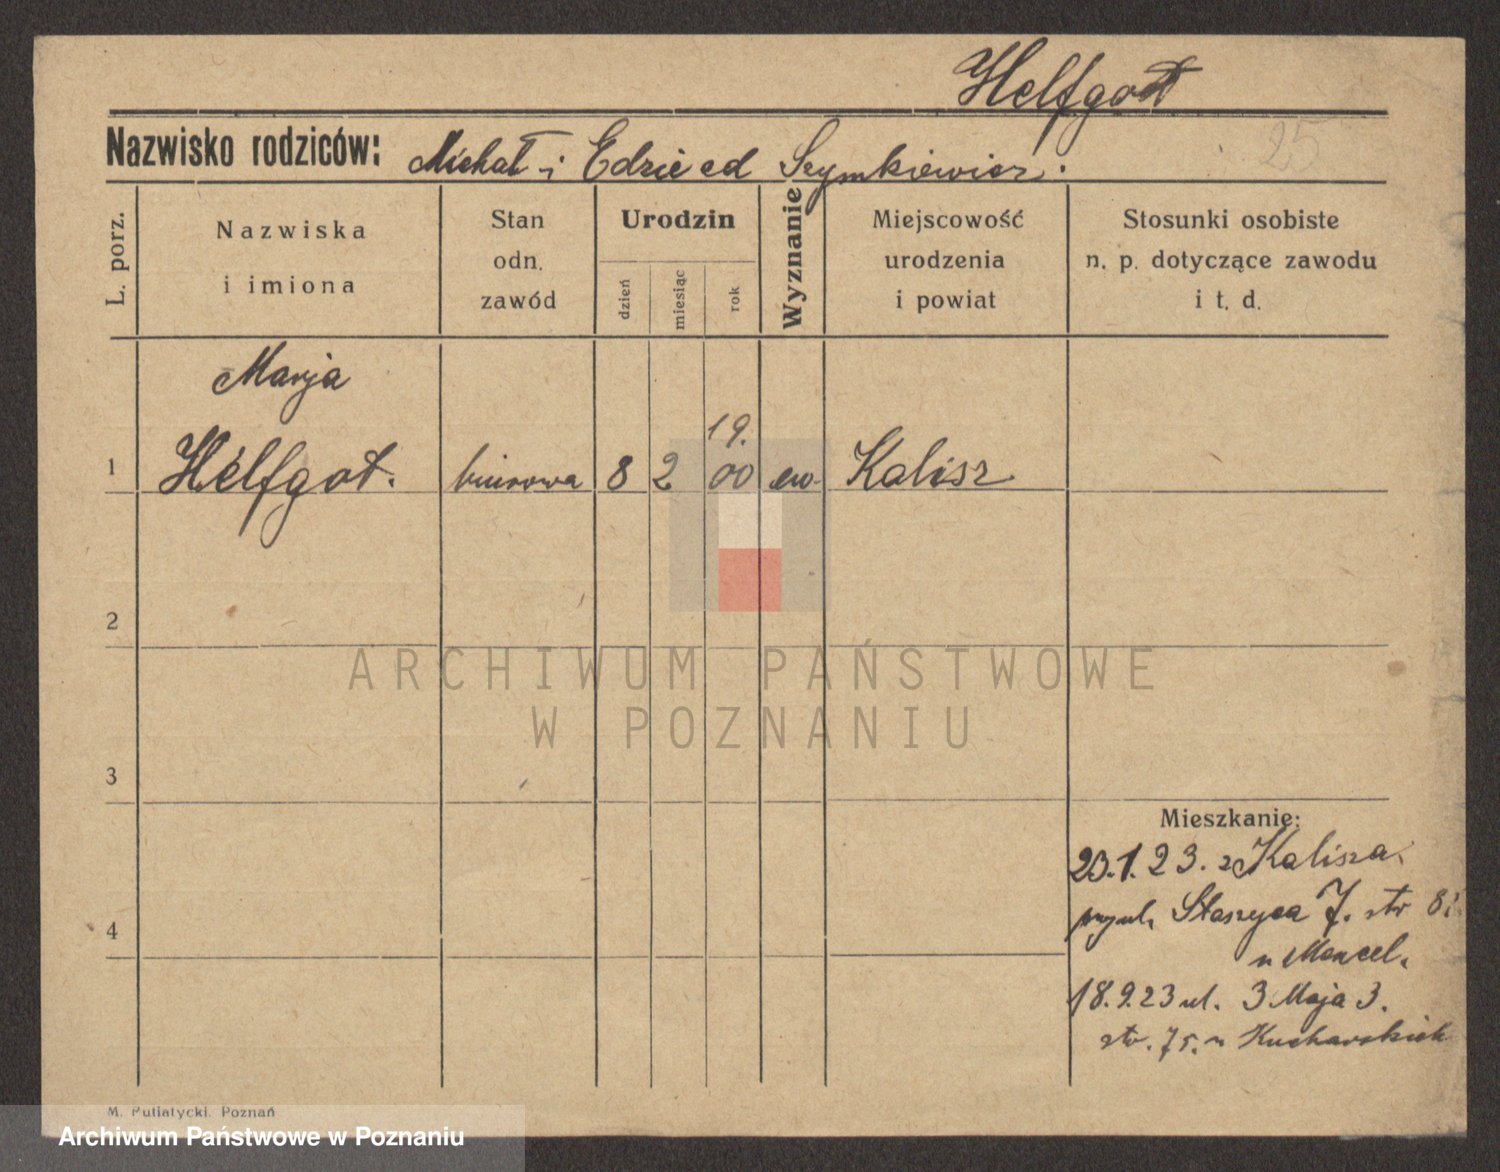 Helfgott
25
Nazwisko rodziców: Michał i Edzie ed Szymkiewicz.
L. porz.
Nazwiska
i imiona
Stan
odn.
zawód
Urodzin
dzień
miesiąc
rok
Wyznanie
Miejscowość
urodzenia
i powiat
Stosunki osobiste
n. p. dotyczące zawodu
i t. d.
Marja
19.
1 Helfgot. biurowa 8 2 00 ew. Kalisz
2
ARCHIWUM PAŃSTWOWE
W POZNANIU
3
Mieszkanie:
23.1.23. z Kalisza
Staszyca 7. str 8
4
u Marcel.
18.9.23 ul. 3 Maja 3.
str. 75. u Kucharskich
M. Putiatycki. Poznań
Archiwum Państwowe w Poznaniu